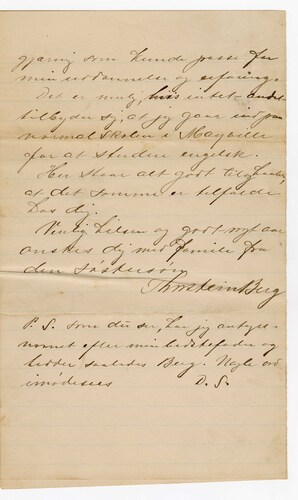 gjerning som kunde passe for
min uddannelse og erfaring.
Det er mulig, hvis intet andet
tilbyder sig, at jeg gaar ind paa
normalskolen i Mayville
for at studere engelsk.
Her staar alt godt til, 
at det samme er tilfælde
hos dig.
Venlig hilsen og godt nyt aar
ønskes dig med familie fra
din Søstersøn
Thorstein Berg
P. S. som du ser, har jeg antaget
navnet efter min bedstefader og
hedder saaledes Berg. Nogle ord
imødesees D. S.